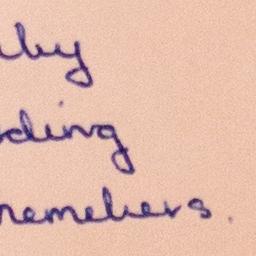 by
ding
remebers.